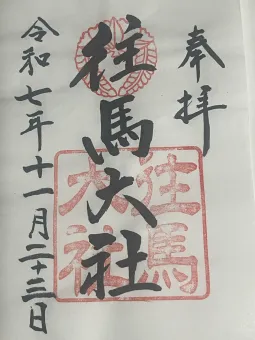 奉拝
往馬大社
往馬
大社
令和七年十一月二十三日